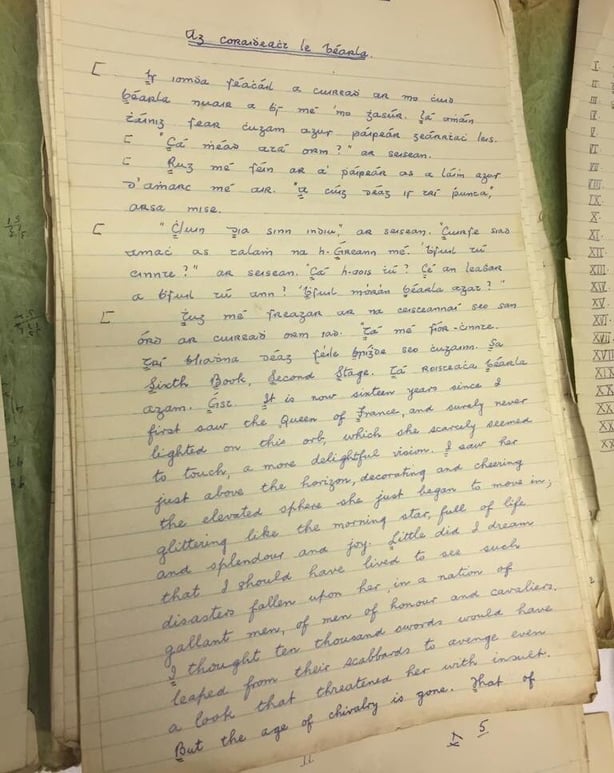 Ag coraiḋeaċt le Béarla.
[ Is iomḋa féaċáil a cuireaḋ ar mo ċuid
Béarla nuair a ḃí mé 'mo ġasúr. Lá aṁáin
ṫáinig fear ċugam agus páipéar geárrtaċ leis.
[ "Cá ṁéad atá orm?" ar seisean.
[ Rug mé féin ar a' ṗáipéar as a láiṁ agus
d'aṁarc mé air. "A cúig déag is trí púnta,"
arsa mise.
[ "Ċluin Dia sinn indiu," ar seisean. "Cuirfe siad
amaċ as talaṁ na h-Éireann mé. Bfuil tú
cinnte?" ar seisean. "Cá h-aois tú? Cé an leaḃar
a bfuil tú ann? Bfuil mórán Béarla agat?"
[ Ṫug mé freagar ar na ceisteannaí seo san
órd ar cuireaḋ orm iad. "Tá mé fíor-ċinnte.
Trí bliaḋna déag féile Briġde seo ċugainn. Sa
Sixth Book, Second Stage. Tá roisteaċa Béarla
agam. Éist. It is now sixteen years since I
first saw the Queen of France, and surely never
lighted on this orb, which she scarcely seemed
to touch, a more delightful vision. I saw her
just above the horizon, decorating and cheering
the elevated sphere she just began to move in;
glittering like the morning star, full of life
and splendour and joy. Little did I dream
that I should have lived to see such
disasters fallen upon her, in a nation of
gallant men, of men of honour and cavaliers.
I thought ten thousand swords would have
leaped from their scabbards to avenge even
a look that threatened her with insult.
But the age of chivalry is gone. That of
I
II
III
IV
V
VI
VII
VIII
IX
X
XI
XII
XIII
XIV
XV
XVI
XVII